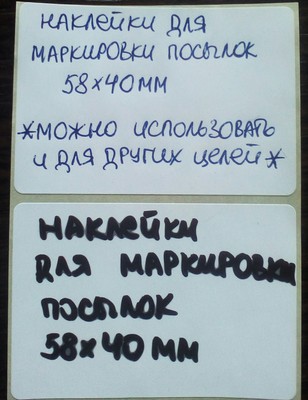 НАКЛЕЙКИ ДЛЯ
МАРКИРОВКИ ПОСЫЛОК
58х40мм
*МОЖНО ИСПОЛЬЗОВАТЬ
И ДЛЯ ДРУГИХ ЦЕЛЕЙ*
НАКЛЕЙКИ
ДЛЯ МАРКИРОВКИ
ПОСЫЛОК
58х40мм